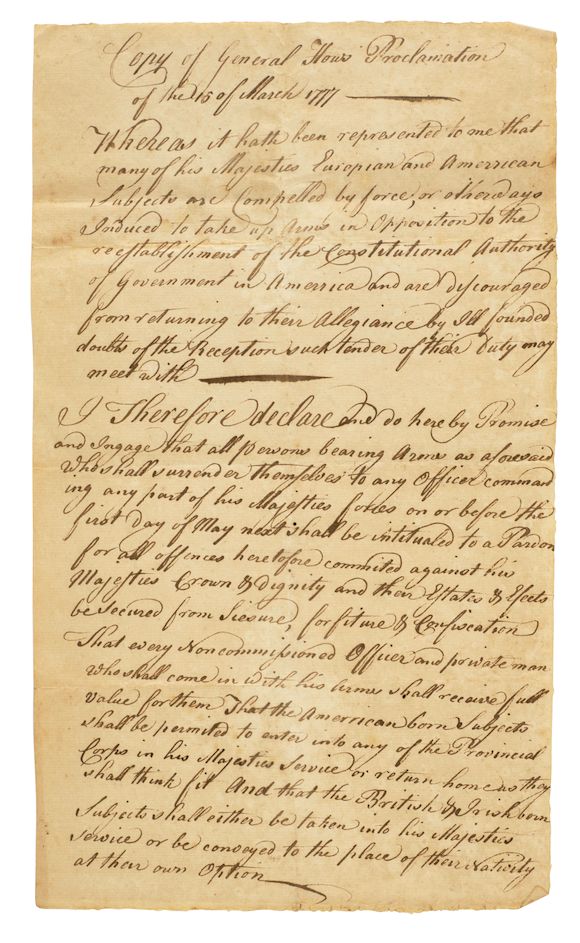 Copy of General Hows Proclamation
of the 15 of March 1777
Whereas it hath been represented to me that
many of his Majesties Europian and Amerrican
Subjects are Compelled by force, or otherways
Induced to take up Arms in Opposition to the
reestablishment of the Constitutional Authority
of Government in Amerrica and are discouraged
from returning to their Allegiance by Ill founded
doubts of the Reception such tender of their Duty may
meet with
I Therefore declare and do hereby Promise
and Ingage that all persons bearing Arms as aforesaid
who shall surrender themselves to any Officer command
ing any part of his Majesties forces on or before the
first Day of May next shall be intitualed to a Pardon
for all offences heretofore commited against his
Majesties Crown & Dignity and their Estates & Efects
be secured from Siesure, forfiture & Confiscation
That every Noncommissioned Officer and private man
who shall come in with his Arms shall receive full
value for them That the Amerrican born Subjects
shall be permited to enter into any of the Provincial
Corps in his Majesties Service or return home as they
shall think fit And that the British & Irish born
Subjects shall either be taken into his Majesties
service or be conveyed to the place of their Nativity
at their own Option